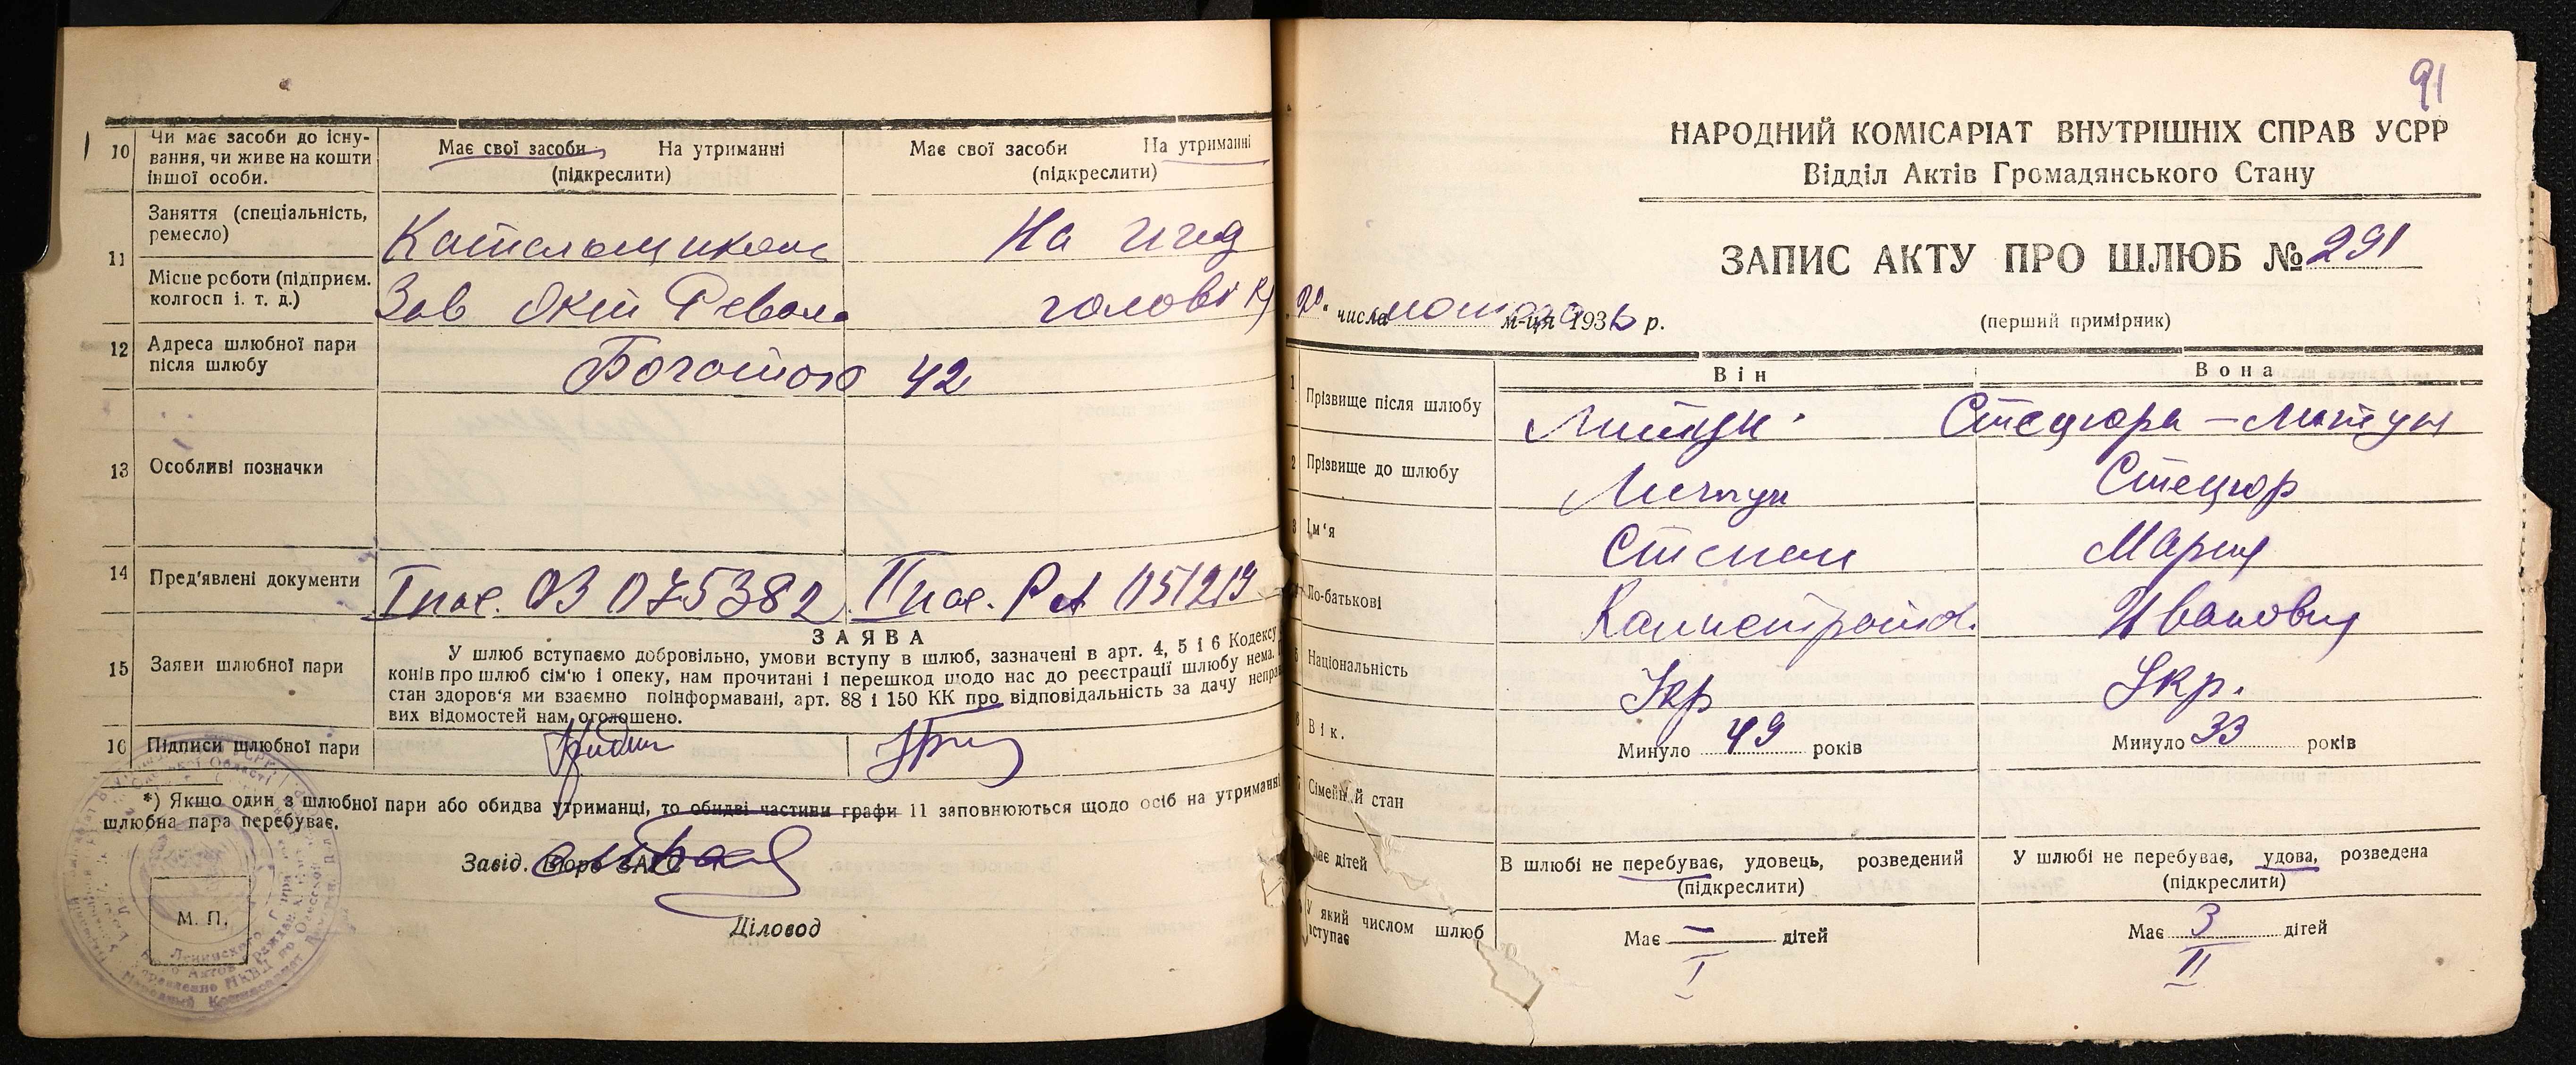 10
Чи має засоби до існу-
вання, чи живе на кошти
іншої особи.
Має свої засоби На утриманні
(підкреслити)
Має свої засоби На утриманні
(підкреслити)
11
Заняття (спеціальність,
ремесло)
На ижд
Місце роботи (підприєм.
колгосп і. т. д.)
Зав Окт Револ
голові
12
Адреса шлюбної пари
після шлюбу
42
13
Особливі позначки
14
Пред'явлені документи
І пас. ОЗ 075382
ІІ пас. РА 051219
15
Заяви шлюбної пари
ЗАЯВА
У шлюб вступаємо добровільно, умови вступу в шлюб, зазначені в арт. 4, 5 і 6 Кодексу
конів про шлюб сім'ю і опеку, нам прочитані і перешкод щодо нас до реєстрації шлюбу нема.
стан здоров'я ми взаємно поінформавані, арт. 88 і 150 КК про відповідальність за дачу неправ
вих відомостей нам оголошено.
16
Підписи шлюбної пари
*) Якщо один з шлюбної пари або обидва утриманці, то обидві частини графи 11 заповнюються щодо осіб на утриманні
шлюбна пара перебуває.
Завід. Бюро ЗАГС
Діловод
М. П.
91
НАРОДНИЙ КОМІСАРІАТ ВНУТРІШНІХ СПРАВ УСРР
Відділ Актів Громадянського Стану
ЗАПИС АКТУ ПРО ШЛЮБ № 291
20 " числа лютого м-ця 1936 р.
(перший примірник)
Він
Вона
1
Прізвище після шлюбу
Литун
Стецюра – Литун
2
Прізвище до шлюбу
Литун
Стецюр
3
Ім'я
Степан
Мария
По-батькові
Калистратов.
Ивановн
Національність
Укр
Укр.
Вік.
Минуло 49 років
Минуло 33 років
Сімейний стан
має дітей
В шлюбі не перебуває, удовець, розведений
(підкреслити)
У шлюбі не перебуває, удова, розведена
(підкреслити)
У який числом шлюб
вступає
Має – дітей
Має 3 дітей
I
II